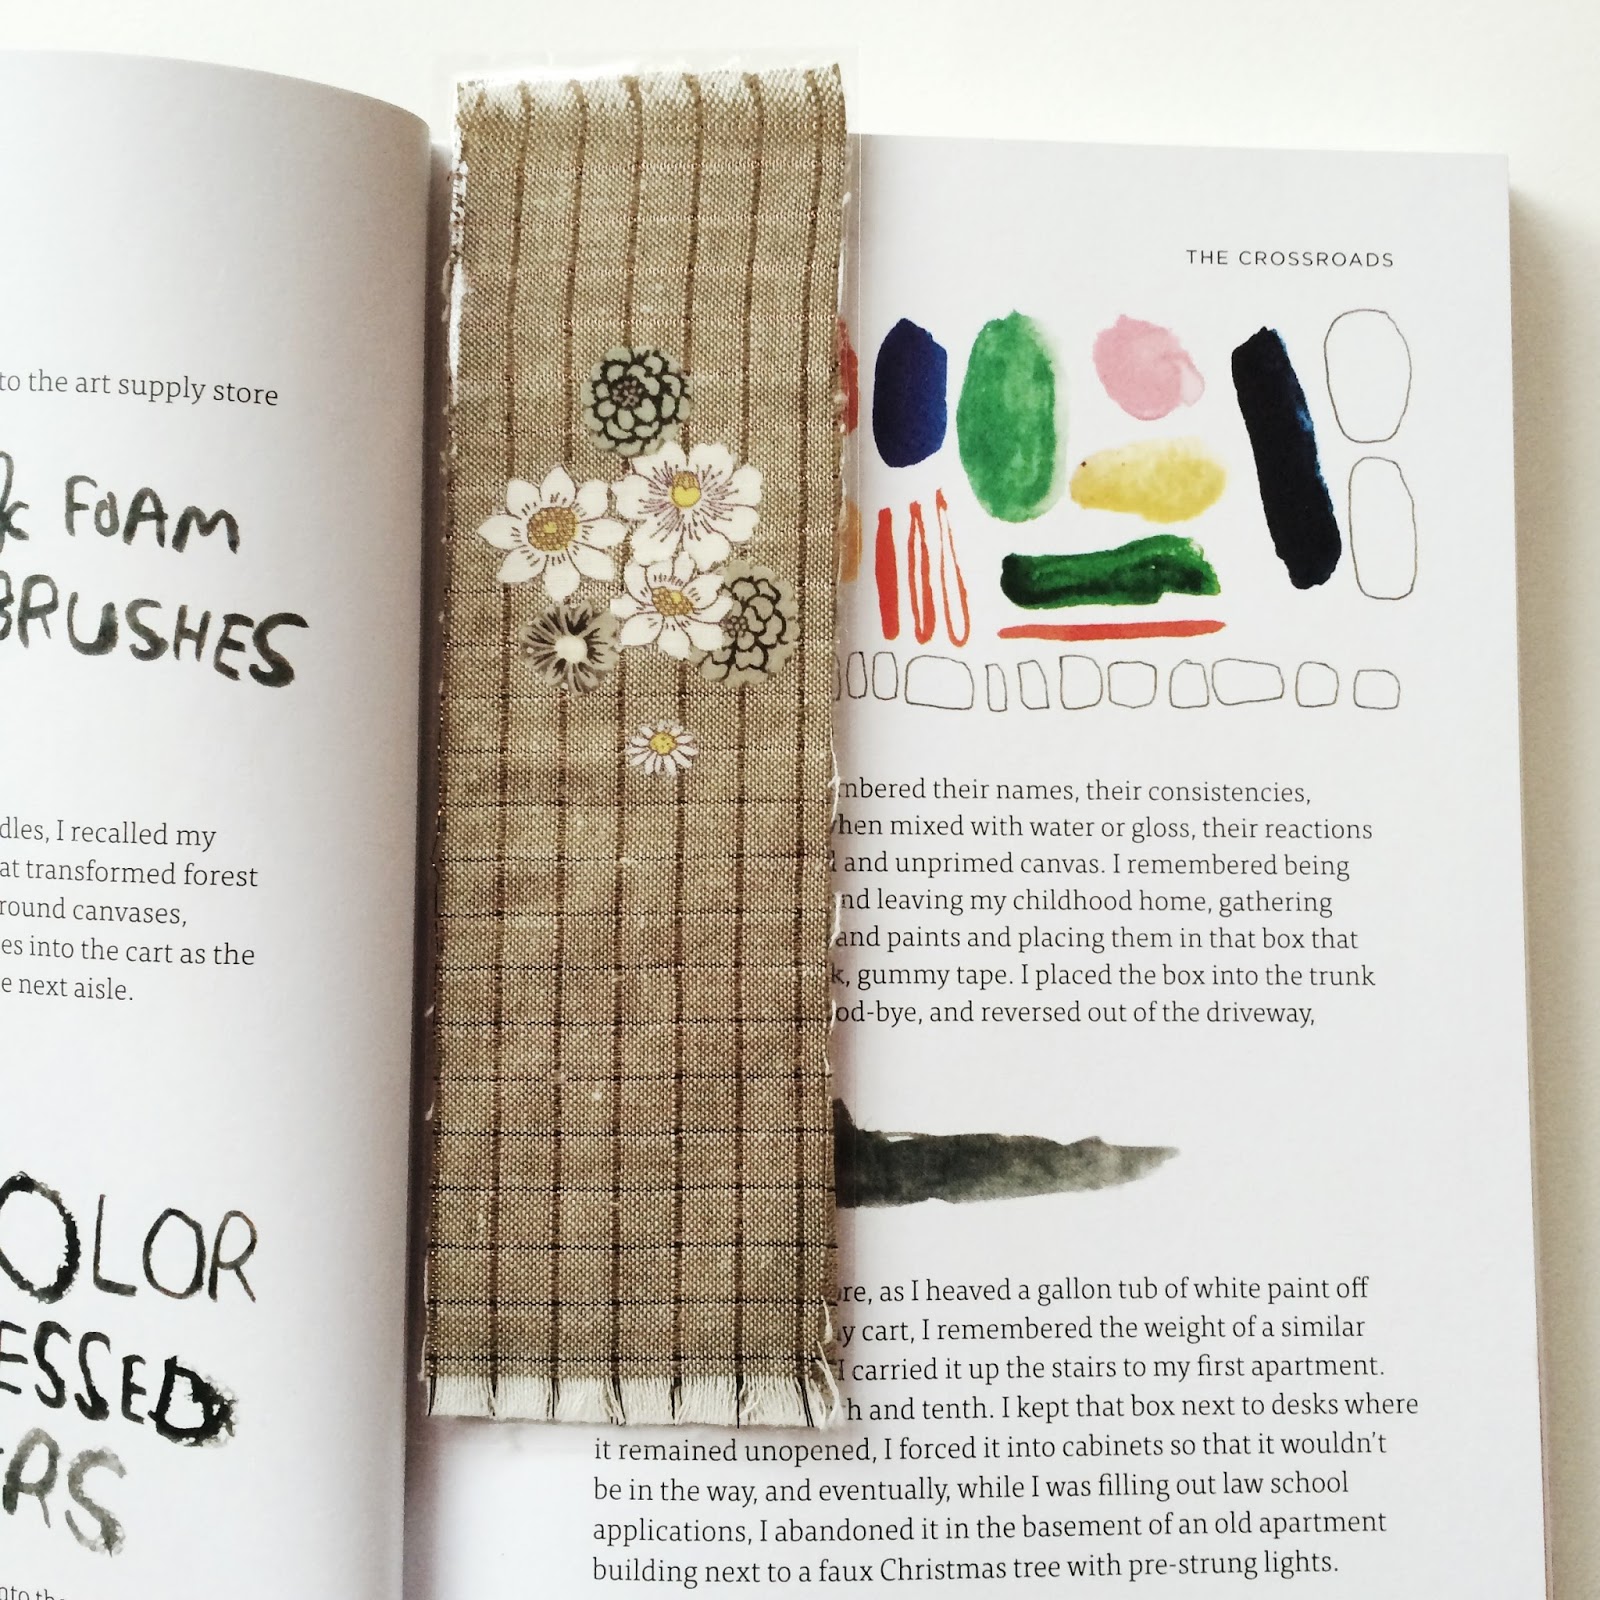 to the art supply store
FOAM
BRUSHES
I recalled my
transformed forest
canvases,
into the cart as the
next aisle.
OLOR
THE CROSSROADS
their names, their consistencies,
mixed with water or gloss, their reactions
and unprimed canvas. I remembered being
leaving my childhood home, gathering
and paints and placing them in that box that
gummy tape. I placed the box into the trunk
and reversed out of the driveway,
as I heaved a gallon tub of white paint off
cart, I remembered the weight of a similar
I carried it up the stairs to my first apartment.
and tenth. I kept that box next to desks where
it remained unopened, I forced it into cabinets so that it wouldn't
be in the way, and eventually, while I was filling out law school
applications, I abandoned it in the basement of an old apartment
building next to a faux Christmas tree with pre-strung lights.